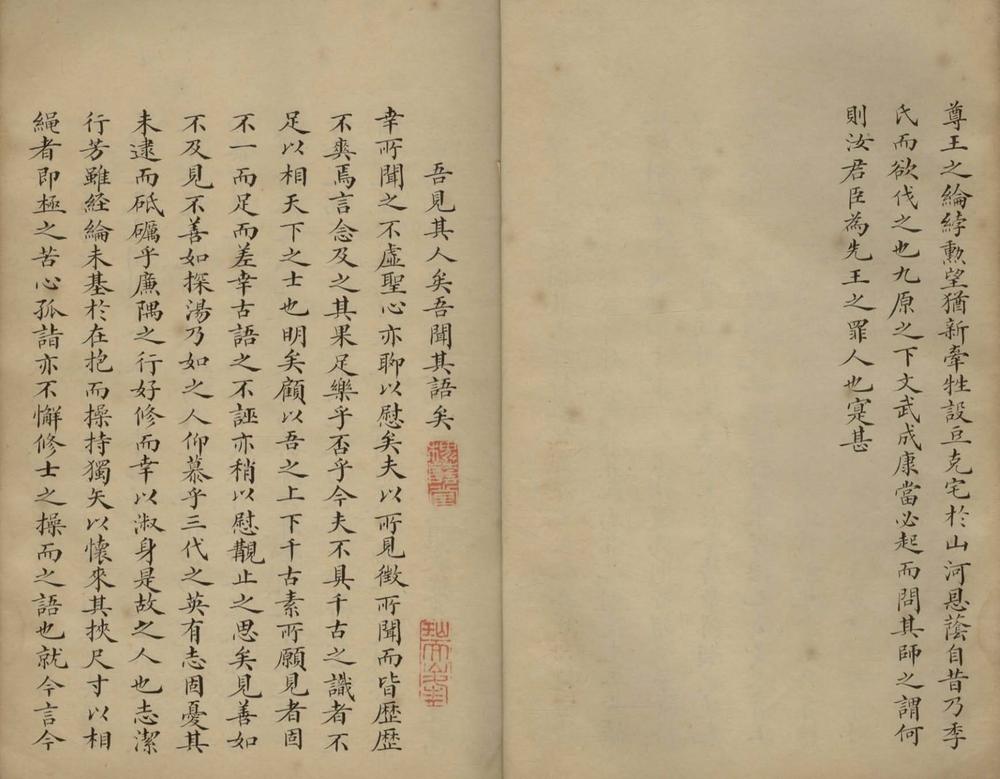 尊王之綸綍勲望猶新牽牲設豆克宅於山河恩蔭自昔乃季
氏而欲伐之也九原之下文武成康當必起而問其師之謂何
則汝君臣為先王之罪人也寔甚
吾見其人矣吾聞其語矣
幸所聞之不虛聖心亦聊以慰矣夫以所見徵所聞而皆歷歷
不爽焉言念及之其果足樂乎否乎今夫不具千古之識者不
足以相天下之士也明矣顧以吾之上下千古素所願見者固
不一而足而差幸古語之不誣亦稍以慰覯止之思矣見善如
不及見不善如探湯乃如之人仰慕乎三代之英有志固憂其
未逮而砥礪乎廉隅之行好修而幸以淑身是故之人也志潔
行芳雖経綸未基於在抱而操持獨矢以懷來其挾尺寸以相
繩者即極之苦心孤詣亦不懈修士之操而之語也就今言今